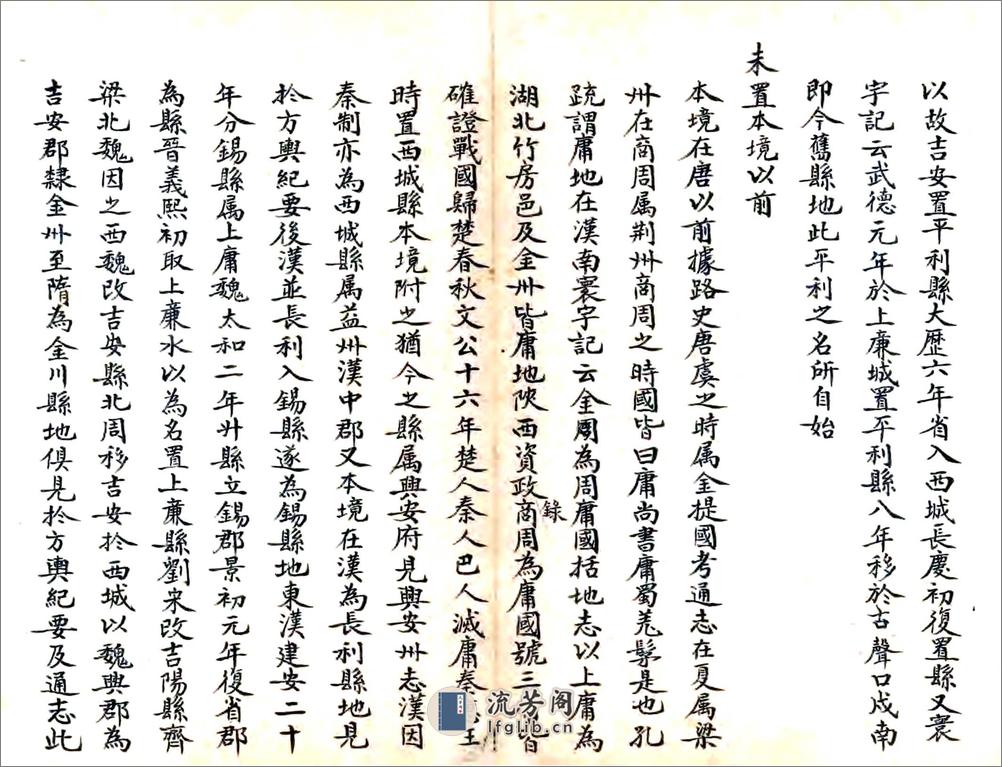 以故吉安置平利縣大歷六年省入西城長慶初復置縣又寰
宇記云武德元年於上廉城置平利縣八年移於古聲口戍南
即今舊縣地此平利之名所自始
未置本境以前
本境在唐以前據路史唐虞之時属金提國考通志在夏属梁
州在商周属荆州商周之時國皆曰庸尚書庸蜀羌髳是也孔
疏謂庸地在漢南寰宇記云金周為周庸國括地志以上庸為
湖北竹房邑及金州皆庸地陝西資政録商周為庸國號三皆
確證戰國歸楚春秋文公十六年楚人秦人巴人滅庸秦王
時置西城縣本境附之猶今之縣属興安府見興安州志漢因
秦制亦為西城縣属益州漢中郡又本境在漢為長利縣地見
於方輿紀要後漢並長利入錫縣遂為錫縣地東漢建安二十
年分錫縣属上庸魏太和二年升縣立錫郡景初元年復省郡
為縣晉義熙初取上廉水以為名置上廉縣劉宋改吉陽縣齊
梁北魏因之西魏改吉安縣北周移吉安於西城以魏興郡為
吉安郡隸金州至隋為金川縣地俱見於方輿紀要及通志此
流芳阁
lfglib.cn